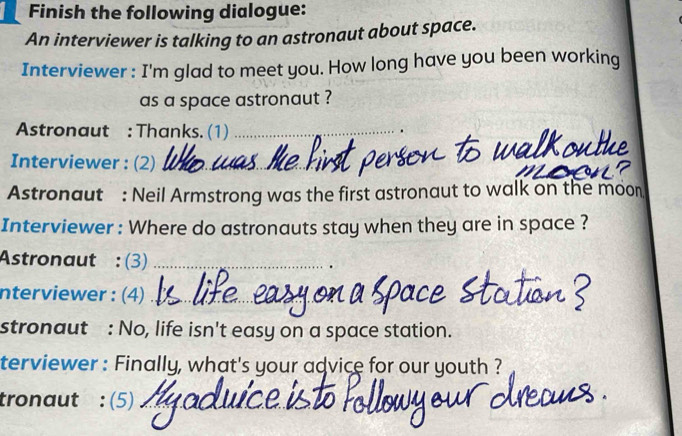 1 Finish the following dialogue:
An interviewer is talking to an astronaut about space.
Interviewer : I'm glad to meet you. How long have you been working
as a space astronaut ?
Astronaut : Thanks. (1) .
Interviewer : (2) Who was the first person to walk on the
moon?
Astronaut : Neil Armstrong was the first astronaut to walk on the moon.
Interviewer : Where do astronauts stay when they are in space ?
Astronaut : (3) .
nterviewer : (4) Is life easy on a space station?
stronaut : No, life isn't easy on a space station.
terviewer : Finally, what's your advice for our youth ?
tronaut : (5) My advice is to follow your dreams.